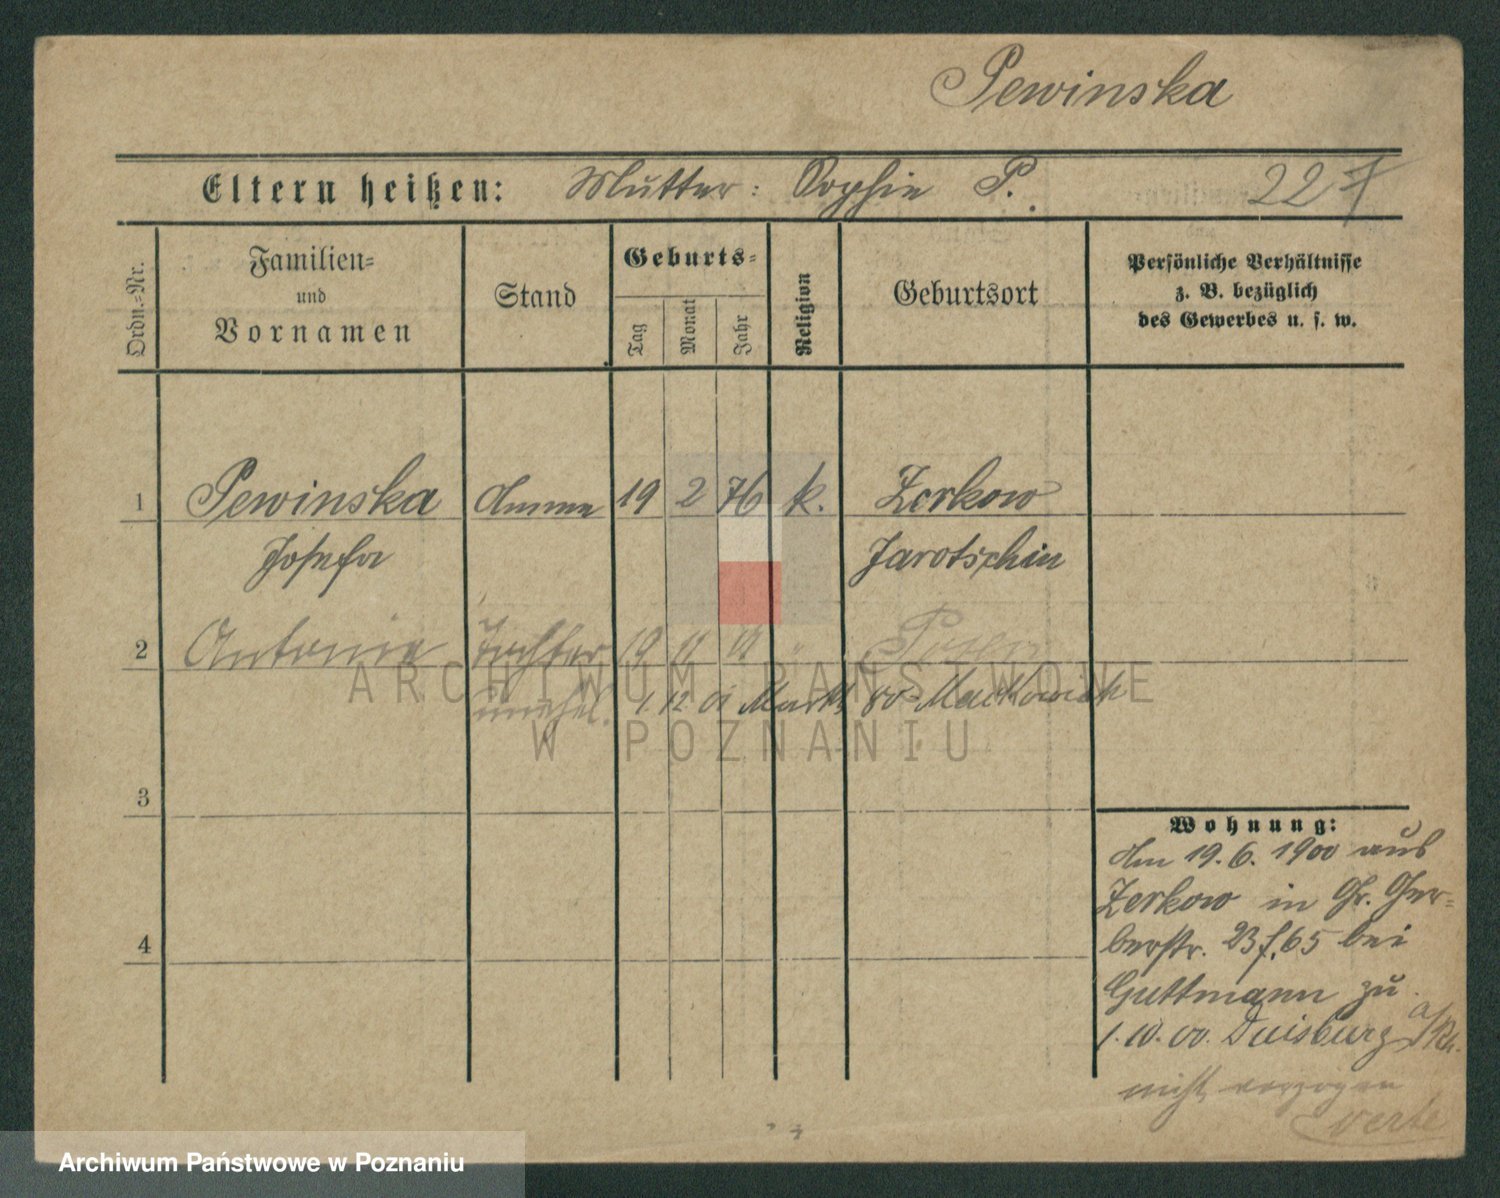 Pewinska
Eltern heißen: Mutter: Sophie P. 227
Ordn.-Nr.
Familien-
und
Vornamen
Stand
Geburts-
Tag
Monat
Jahr
Religion
Geburtsort
Persönliche Verhältnisse
z. B. bezüglich
des Gewerbes u. s. w.
1 Pewinska Amme 19 2 76 k. Zerkow
Josefa Jarotschin
2 Antonie Tochter 19 " Posen
unehel. 1. 12 01 Markt 80 Mackowiak
ARCHIWUM PAŃSTWOWE
W POZNANIU
3
4
Wohnung:
Am 19. 6. 1900 aus
Zerkow in Gr. Ger-
berstr. 23 f. 65 bei
Guttmann zu
1. 10. 00. Duisburg a/Rh.
nicht verzogen
verte
Archiwum Państwowe w Poznaniu